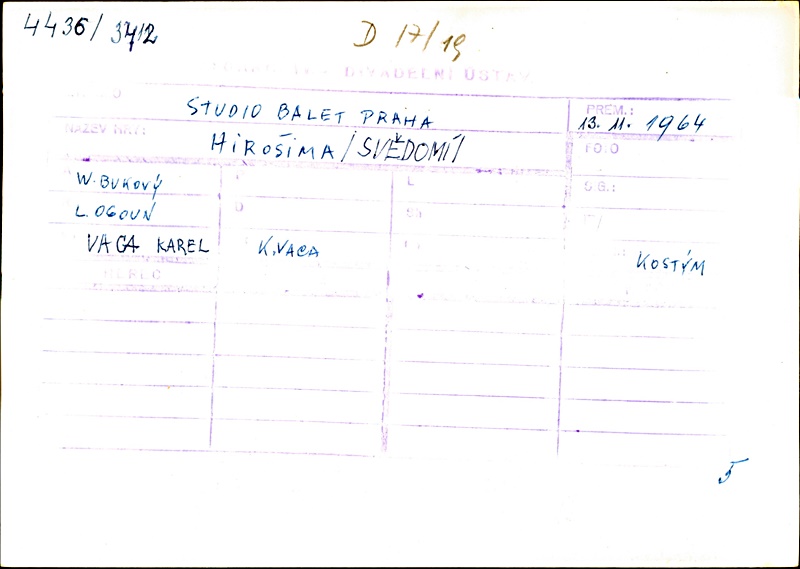 4436/3712
D 17/19
DIVADELNÍ ÚSTAV
STUDIO BALET PRAHA
PREM.:
13. 11. 1964
NÁZEV HRY:
HIROŠIMA /SVĚDOMÍ/
FOTO
W. BUKOVÝ
L
S.G.:
L. OGOUN
VACA KAREL
K. VACA
KOSTÝM
HEREC
5